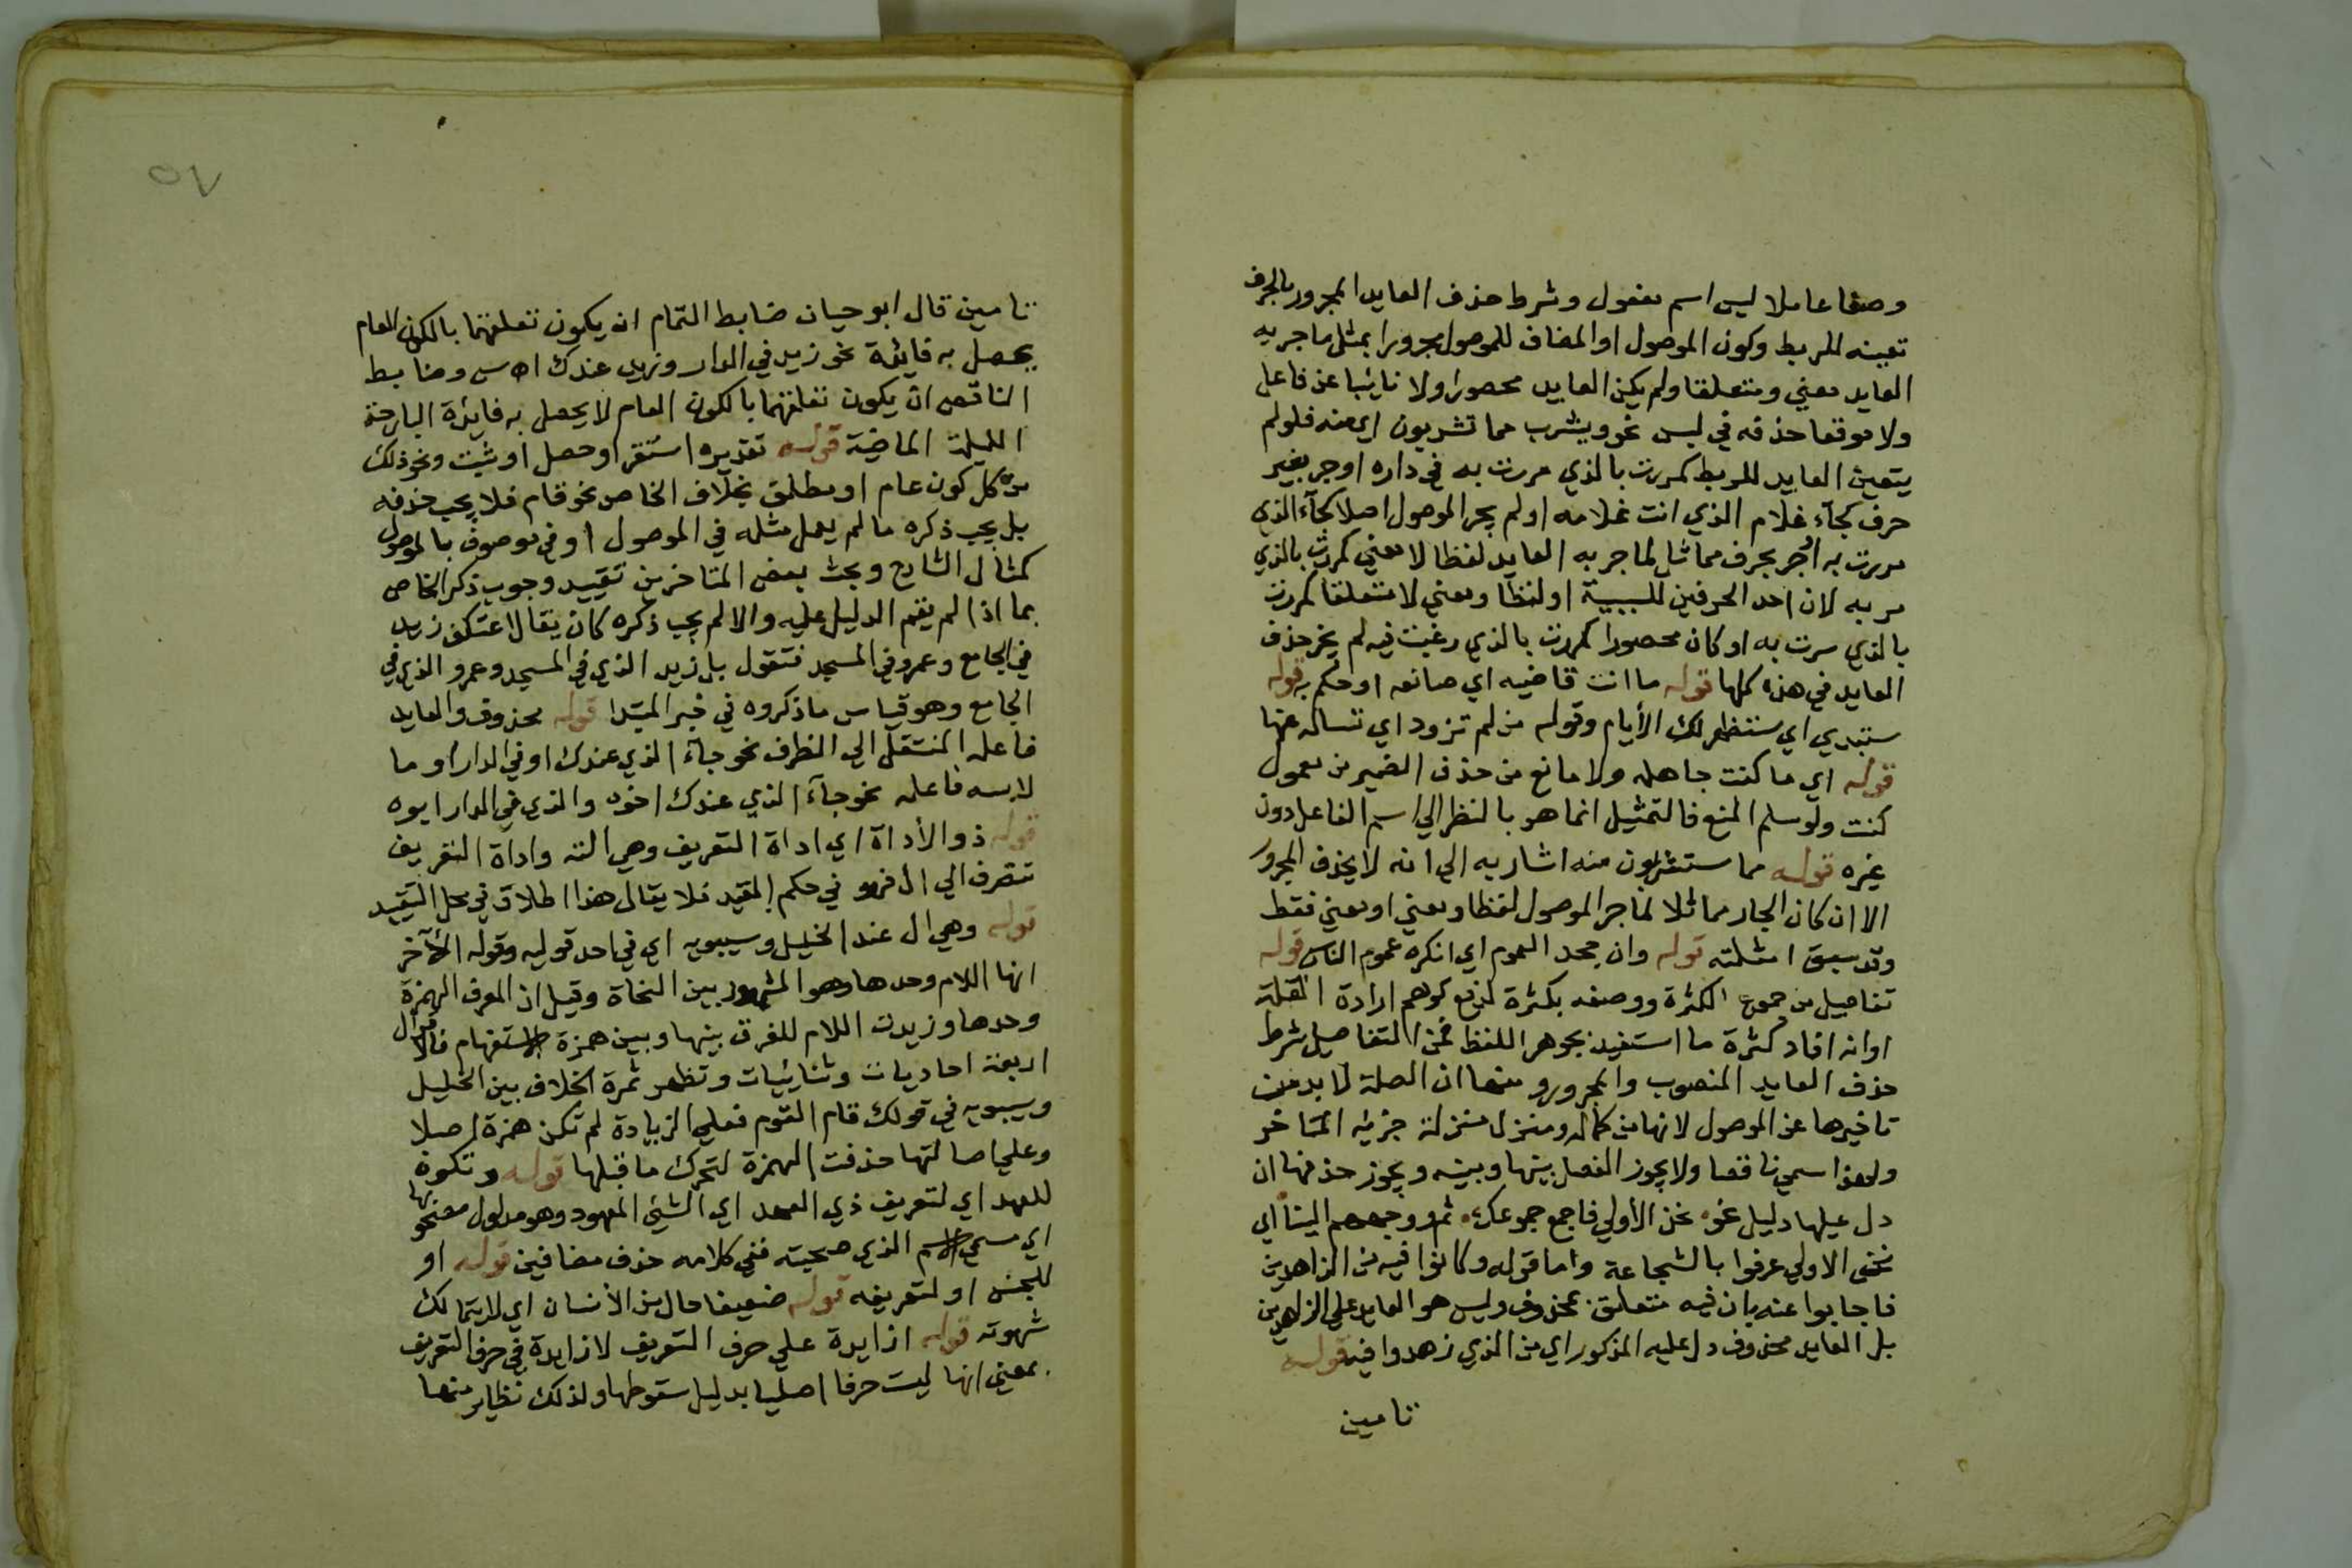 وصفا عاملا ليس اسم مفعول وشرط حذف العايد المجرور بالحرف
تعينه للربط وكون الموصول او المضاف للموصول مجرورا بمثل ما جر به
العايد معني ومتعلقا ولم يكن العايد محصورا ولا نايبا عن فاعل
ولا موقعا حذفه في لبس نحو ويشرب مما تشربون اي منه فلو لم
يتعين العايد للربط كمررت بالذي مررت به في داره او جر بغير
حرف كجآء غلام الذي انت غلامه او لم يجر الموصول اصلا كجآء الذي
مررت به او جر بحرف مماثل لما جر به العايد لفظا لا معني كمررت بالذي
مر به لان احد الحرفين للسببية او لفظا ومعني لا متعلقا كمررت
بالذي سرت به او كان محصورا كمررت بالذي رغبت فيه لم يجز حذف
العايد في هذه كلها قوله ما انت قاضيه اي صانعه او حكم به قوله
ستبدي اي ستظهر لك الأيام وقوله من لم تزود اي تساله عنها
قوله اي ما كنت جاهله ولا مانع من حذف الضمير من معمول
كنت ولو سلم المنع فالتمثيل انما هو بالنظر الي اسم الفاعل دون
غيره قوله مما ستشربون منه اشار به الي انه لا يحذف المجرور
الا ان كان الجار مماثلا لما جر الموصول لفظا ومعني او معني فقط
وقد سبق امثلته قوله وان جحد العموم اي انكره عموم الناس قوله
تفاصيل من جموع الكثرة ووصفه بكثرة لدفع توهم ارادة القلة
او انه افاد كثرة ما استفيد بجوهر اللفظ فمن التفاصيل شرط
حذف العايد المنصوب والمجرور ومنها ان الصلة لا بد من
تاخيرها عن الموصول لانها من كماله ومنزل منزلة جزئه المتاخر
ولهذا سمي ناقصا ولا يجوز الفصل بينها وبينه ويجوز حذفها ان
دل عليها دليل نحو نحن الأولي فاجمع جموعك ثم ووجههم الينا اي
نحن الاولي عرفوا بالشجاعة واما قوله وكانوا فيه من الزاهدين
فاجابوا عنه بان فيه متعلق بمحذوف وليس هو العايد علي الزاهدين
بل العايد محذوف دل عليه المذكور اي من الذي زهدوا فيه قوله
تامين
٥٧
تامين قال ابو حيان ضابط التمام ان يكون تعلقهما بالكون العام
يحصل به فايدة نحو زيد في الدار وزيد عندك امس وضابط
الناقص ان يكون تعلقهما بالكون العام لا يحصل به فايدة البارحة
الليلة الماضية قوله تقديره استقر او حصل او ثبت ونحو ذلك
من كل كون عام او مطلق بخلاف الخاص نحو قام فلا يجب حذفه
بل يجب ذكره ما لم يعمل مثله في الموصول او في موصوف بالموصول
كمثال الشارح وبحث بعض المتاخرين تقييد وجوب ذكر الخاص
بما اذا لم يقم الدليل عليه والا لم يجب ذكره كان يقال اعتكف زيد
في الجامع وعمرو في المسجد فتقول بل زيد الذي في المسجد وعمرو الذي في
الجامع وهو قياس ما ذكروه في خبر المبتدا قوله محذوف والعايد
فاعله المنتقل الي الظرف نحو جآء الذي عندك او في الدار او ما
لابسه فاعله نحو جآء الذي عندك اخوه والذي في الدار ابوه
قوله ذو الأداة اي اداة التعريف وهي الته واداة التعريف
تنصرف الي ال فهو في حكم المقيد فلا يقال هذا اطلاق في محل التقييد
قوله وهي ال عند الخليل وسيبويه اي في احد قوليه وقوله الآخر
انها اللام وحدها وهو المشهور بين النحاة وقيل ان المعرف الهمزة
وحدها وزيدت اللام للفرق بينها وبين همزة الاستفهام فالاقوال
اربعة احاديات وثنائيات وتظهر ثمرة الخلاف بين الخليل
وسيبويه في قولك قام القوم فعلي الزيادة لم تكن همزة اصلا
وعلي اصالتها حذفت الهمزة لتحرك ما قبلها قوله وتكون
للعهد اي لتعريف ذي العهد اي الشئ المعهود وهو مدلول مصحوبها
اي مسمي الاسم الذي صحبته ففي كلامه حذف مضافين قوله او
للجنس او لتعريفه قوله ضعيفا حال من الأنسان اي لا يتمالك
شهوته قوله ازايدة علي حرف التعريف لا زايدة في حرف التعريف
بمعني انها ليت حرفا اصليا بدليل سقوطها ولذلك نظاير منها